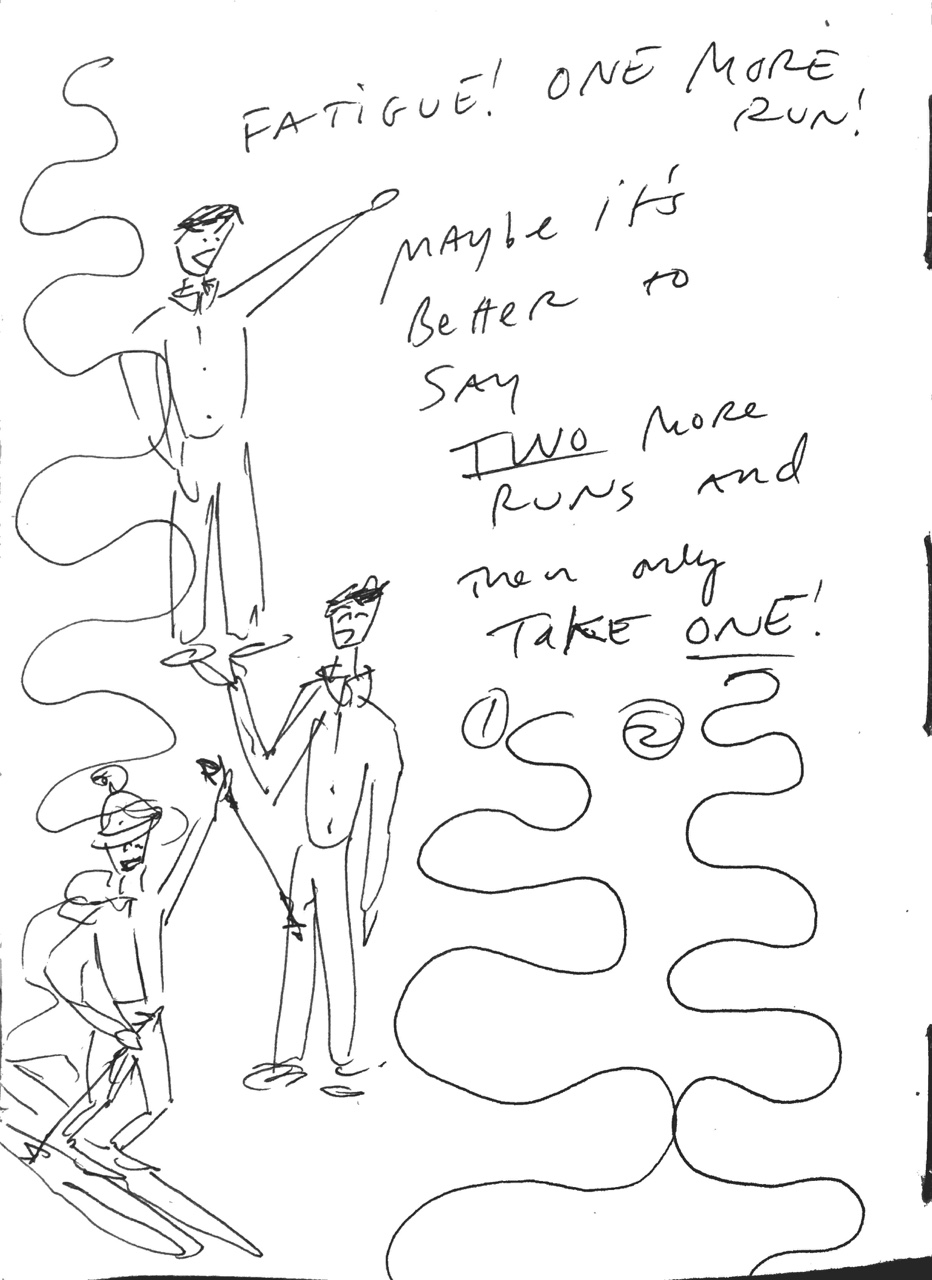 FATIGUE! ONE MORE
RUN!
MAYbe it's
Better to
SAY
TWO MORE
RUNS and
Then only
TAKE ONE!
① ②